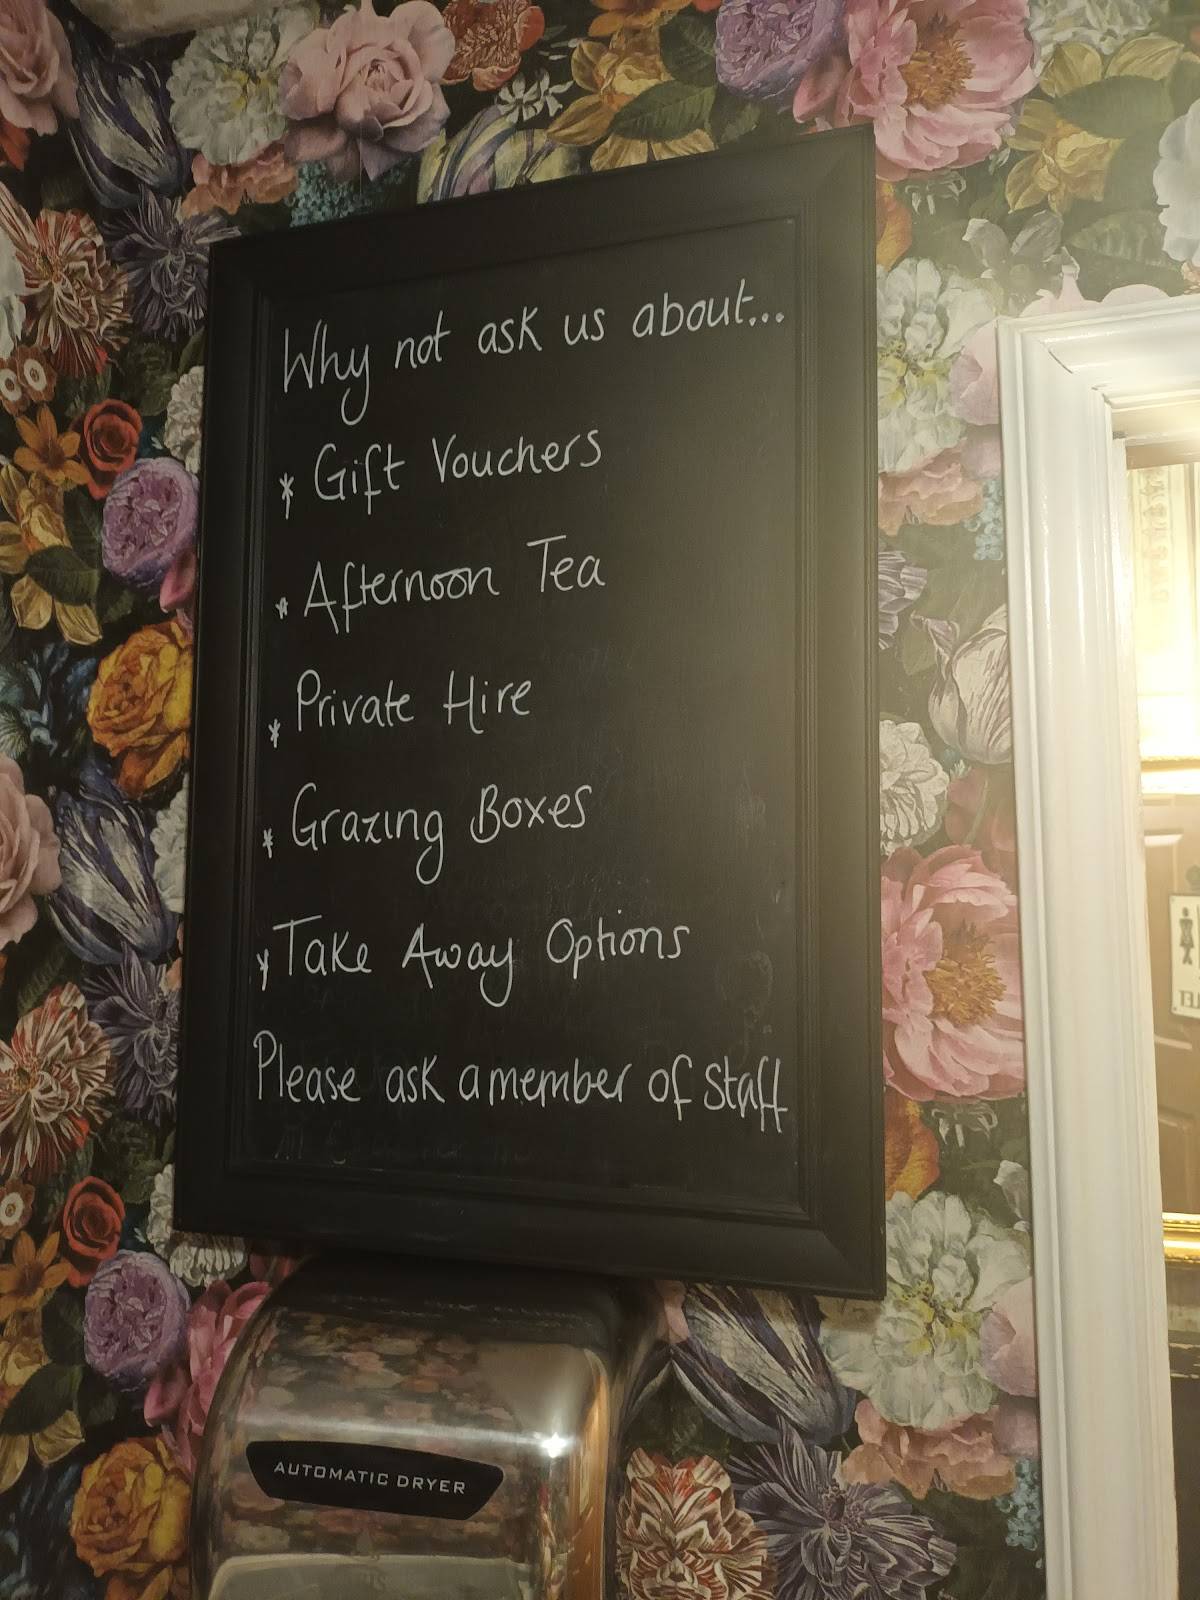 Why not ask us about...
* Gift Vouchers
* Afternoon Tea
* Private Hire
* Grazing Boxes
* Take Away Options
Please ask a member of staff
AUTOMATIC DRYER